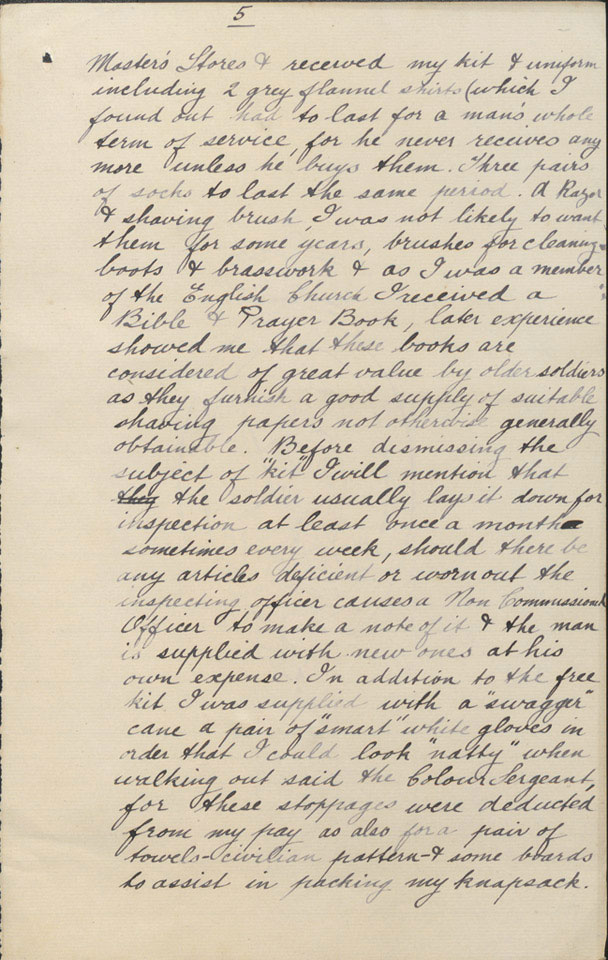 5
Master's Stores & received my kit & uniform
including 2 grey flannel shirts (which I
found out had to last for a man's whole
term of service, for he never receives any
more unless he buys them. Three pairs
of socks to last the same period. A Razor
& shaving brush, I was not likely to want
them for some years, brushes for cleaning
boots & brasswork & as I was a member
of the English Church I received a
Bible & Prayer Book, later experience
showed me that these books are
considered of great value by older soldiers
as they furnish a good supply of suitable
shaving papers not otherwise generally
obtainable. Before dismissing the
subject of "kit" I will mention that
they the soldier usually lays it down for
inspection at least once a month
sometimes every week, should there be
any articles deficient or worn out the
inspecting officer causes a Non Commissioned
Officer to make a note of it & the man
is supplied with new ones at his
own expense. In addition to the free
kit I was supplied with a "swagger"
cane a pair of "smart" white gloves in
order that I could look "natty" when
walking out said the Colour Sergeant,
for these stoppages were deducted
from my pay as also for a pair of
towels - civilian pattern - & some boards
to assist in packing my knapsack.